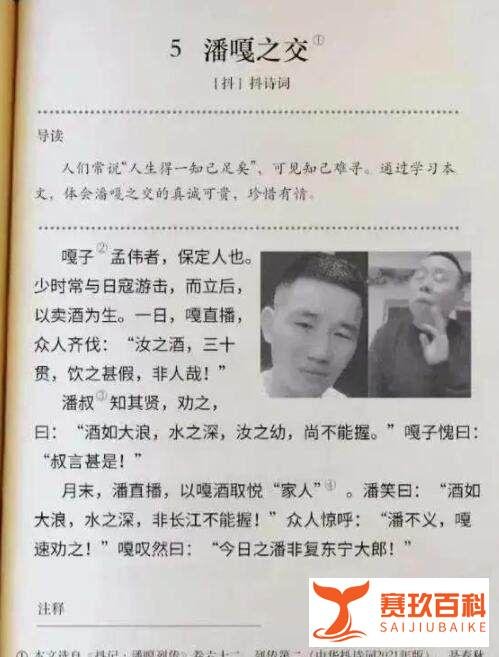 5 潘嘎之交①
[抖] 抖诗词
导读
人们常说“人生得一知己足矣”，可见知己难寻。通过学习本
文，体会潘嘎之交的真诚可贵，珍惜有情。
嘎子②孟伟者，保定人也。
少时常与日寇游击，而立后，
以卖酒为生。一日，嘎直播，
众人齐伐：“汝之酒，三十
贯，饮之甚假，非人哉！”
潘叔③知其贤，劝之，
曰：“酒如大浪，水之深，汝之幼，尚不能握。”嘎子愧曰：
“叔言甚是！”
月末，潘直播，以嘎酒取悦“家人”④。潘笑曰：“酒如
大浪，水之深，非长江不能握！”众人惊呼：“潘不义，嘎
速劝之！”嘎叹然曰：“今日之潘非复东宁大郎！”
注释
①本文选自《抖记·潘嘎列传》卷六十二，列传第二（中华抖诗词2021年版）
赛玖百科
WWW.SAIJIUBAIKE